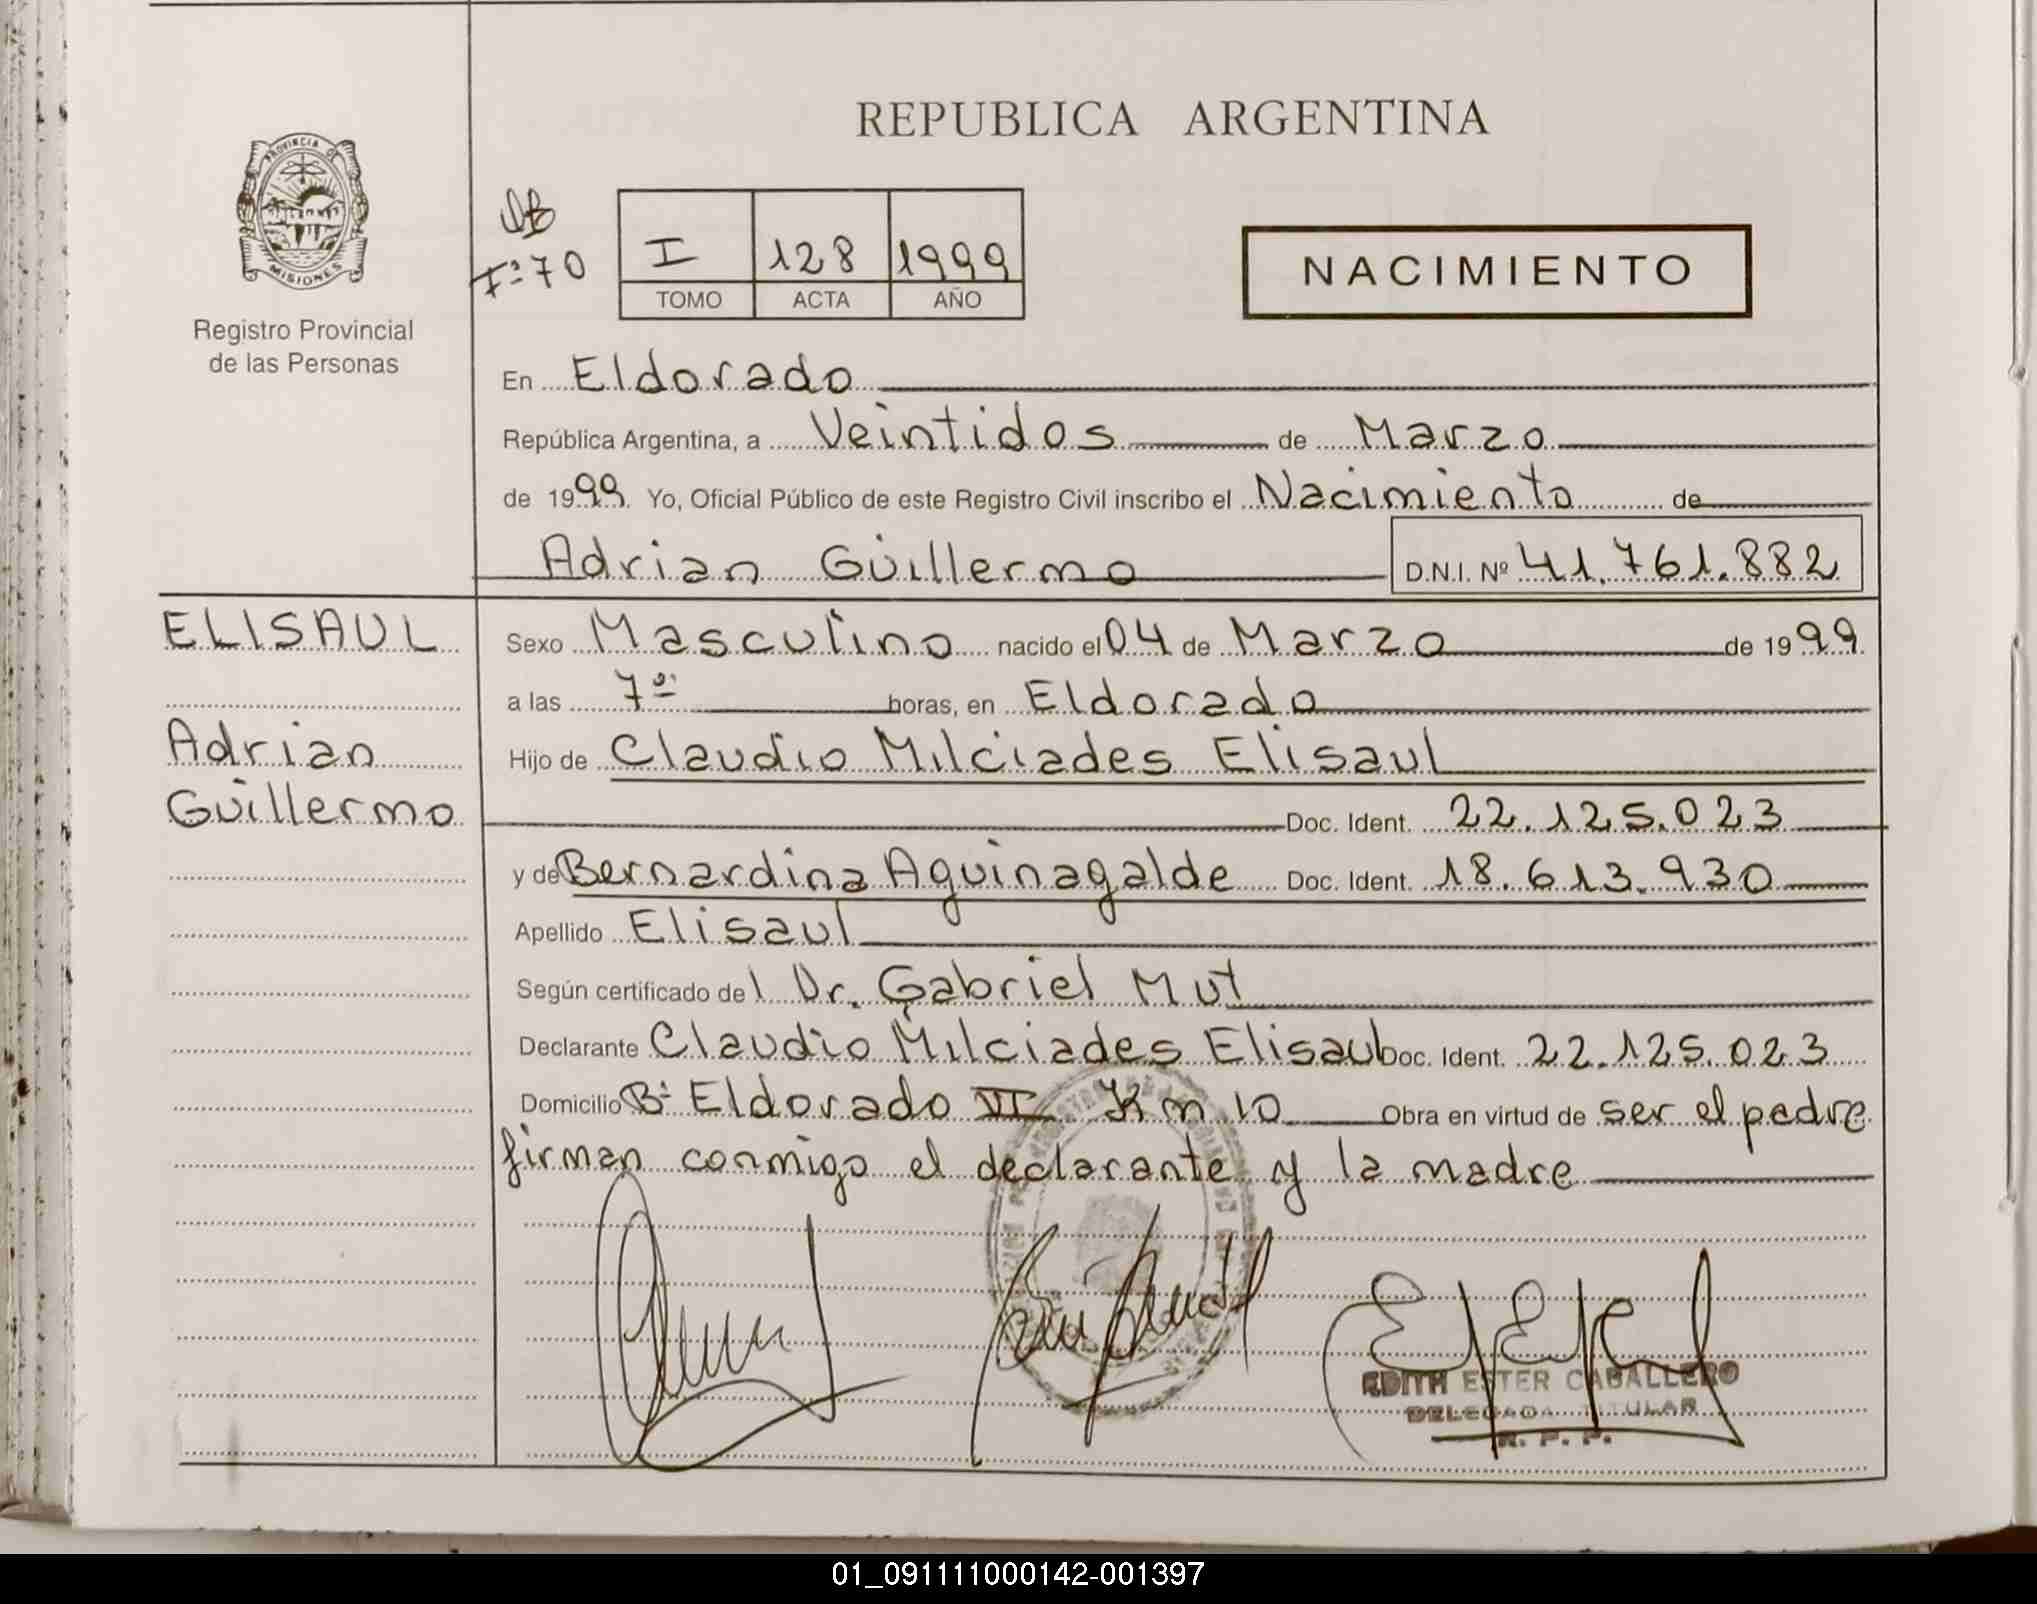 REPUBLICA ARGENTINA
PROVINCIA DE
MISIONES
Registro Provincial
de las Personas
Fº 70
I 128 1999
TOMO ACTA AÑO
NACIMIENTO
En Eldorado
República Argentina, a Veintidos de Marzo
de 1999 Yo, Oficial Público de este Registro Civil inscribo el Nacimiento de
Adrian Guillermo D.N.I. Nº 41.761.882
ELISAUL
Adrian
Guillermo
Sexo Masculino nacido el 04 de Marzo de 1999
a las 7º horas, en Eldorado
Hijo de Claudio Milciades Elisaul
Doc. Ident. 22.125.023
y de Bernardina Aguinagalde Doc. Ident. 18.613.930
Apellido Elisaul
Según certificado del Dr. Gabriel Mut
Declarante Claudio Milciades Elisaul Doc. Ident. 22.125.023
Domicilio Bº Eldorado VI Km 10 Obra en virtud de ser el padre
firman conmigo el declarante y la madre
EDITH ESTER CABALLERO
DELEGADA TITULAR
R. P. P.
01_091111000142-001397